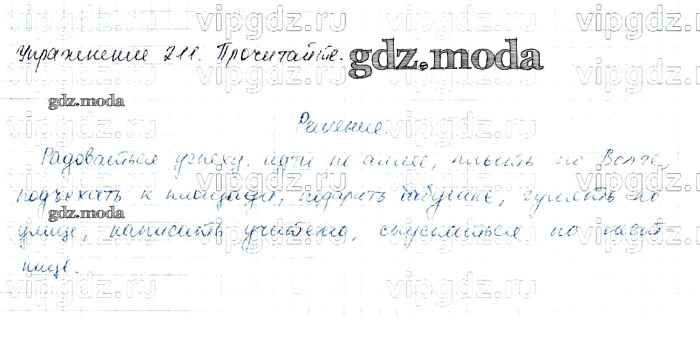 vipgdz.ru vipgdz.ru vipgdz.ru
Упражнение 211. Прочитайте. gdz.moda
gdz.moda
vipgdz.ru vipgdz.ru vipgdz.ru
Решение.
Радоваться успеху, идти по аллее, плыть по Волге,
подъехать к площади, подарить бабушке, гулять по
gdz.moda
улице, написать учителю, спуститься по лест
нице.
vipgdz.ru vipgdz.ru vipgdz.ru